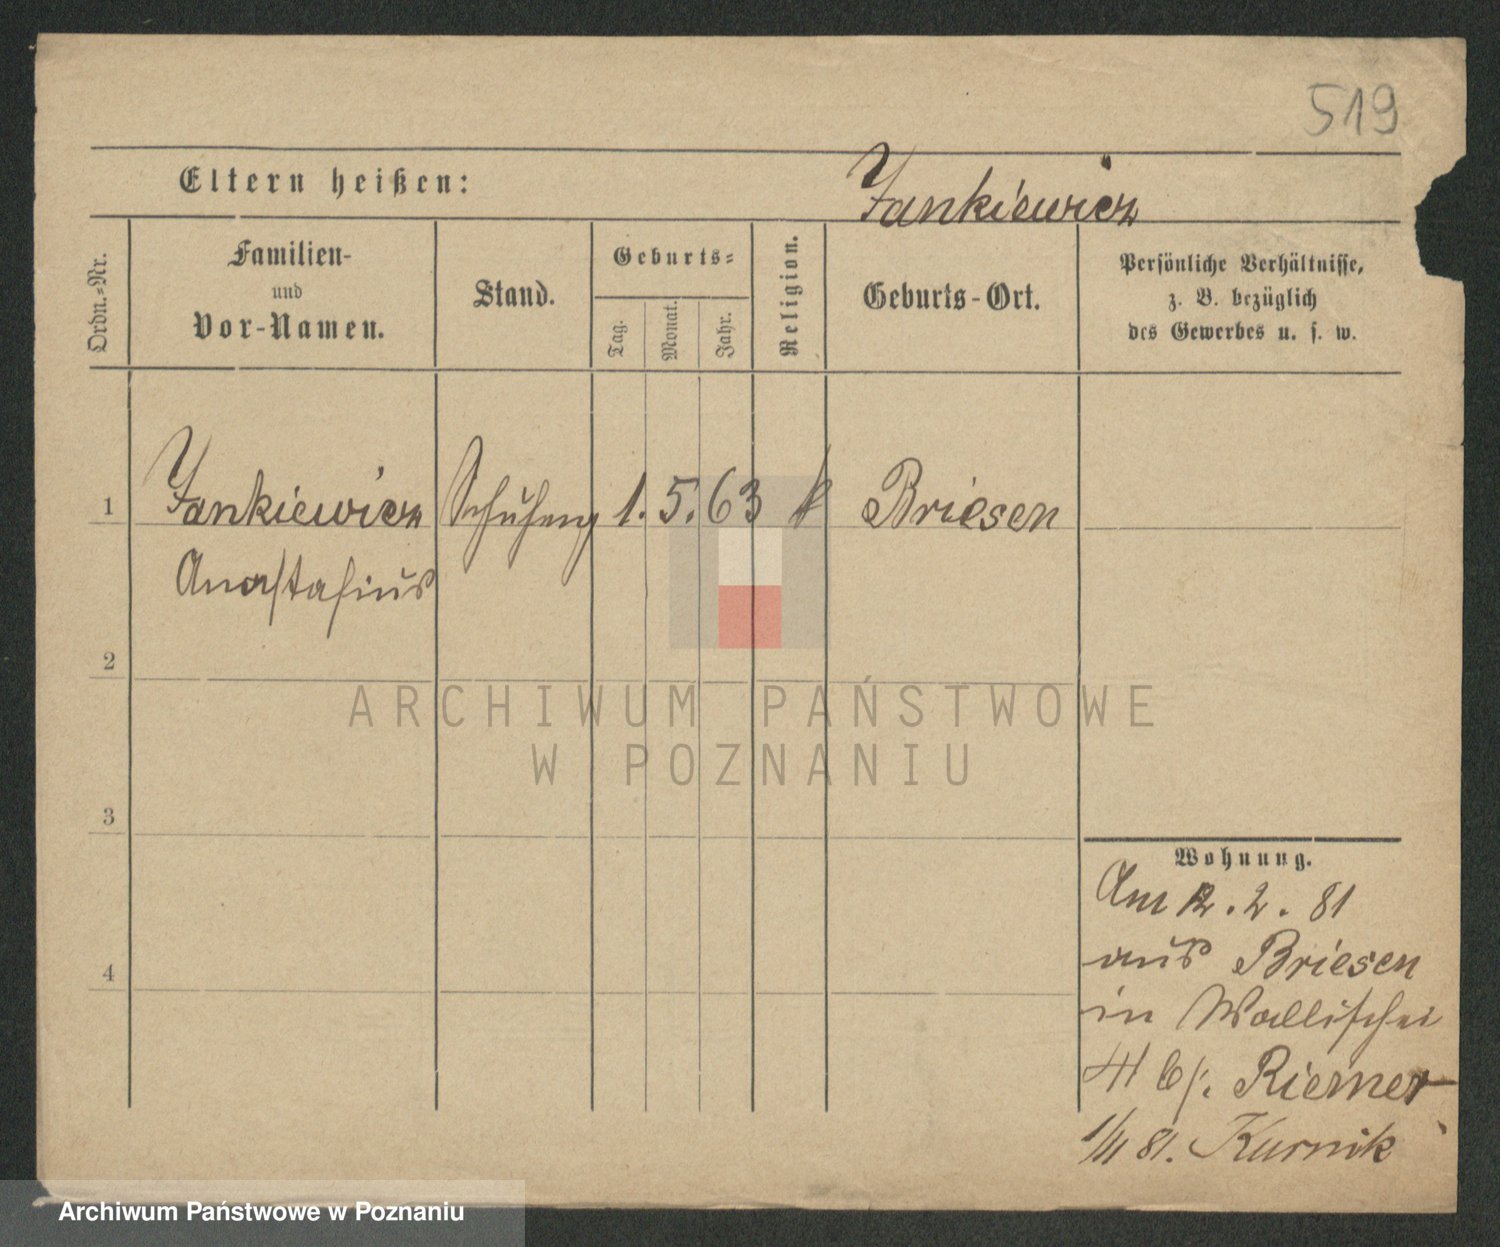 519
Eltern heißen:
Jankiewicz
Ordn.-Nr.
Familien-
und
Vor-Namen.
Stand.
Geburts-
Tag.
Monat.
Jahr.
Religion.
Geburts-Ort.
Persönliche Verhältnisse,
z. B. bezüglich
des Gewerbes u. s. w.
1 Jankiewicz 1. 5. 63 k Briesen
Anastasius
2
3
4
Wohnung.
Am 12. 2. 81
aus Briesen
in Wallischei
Riemer
1/III 81. Kurnik
ARCHIWUM PAŃSTWOWE
W POZNANIU
Archiwum Państwowe w Poznaniu